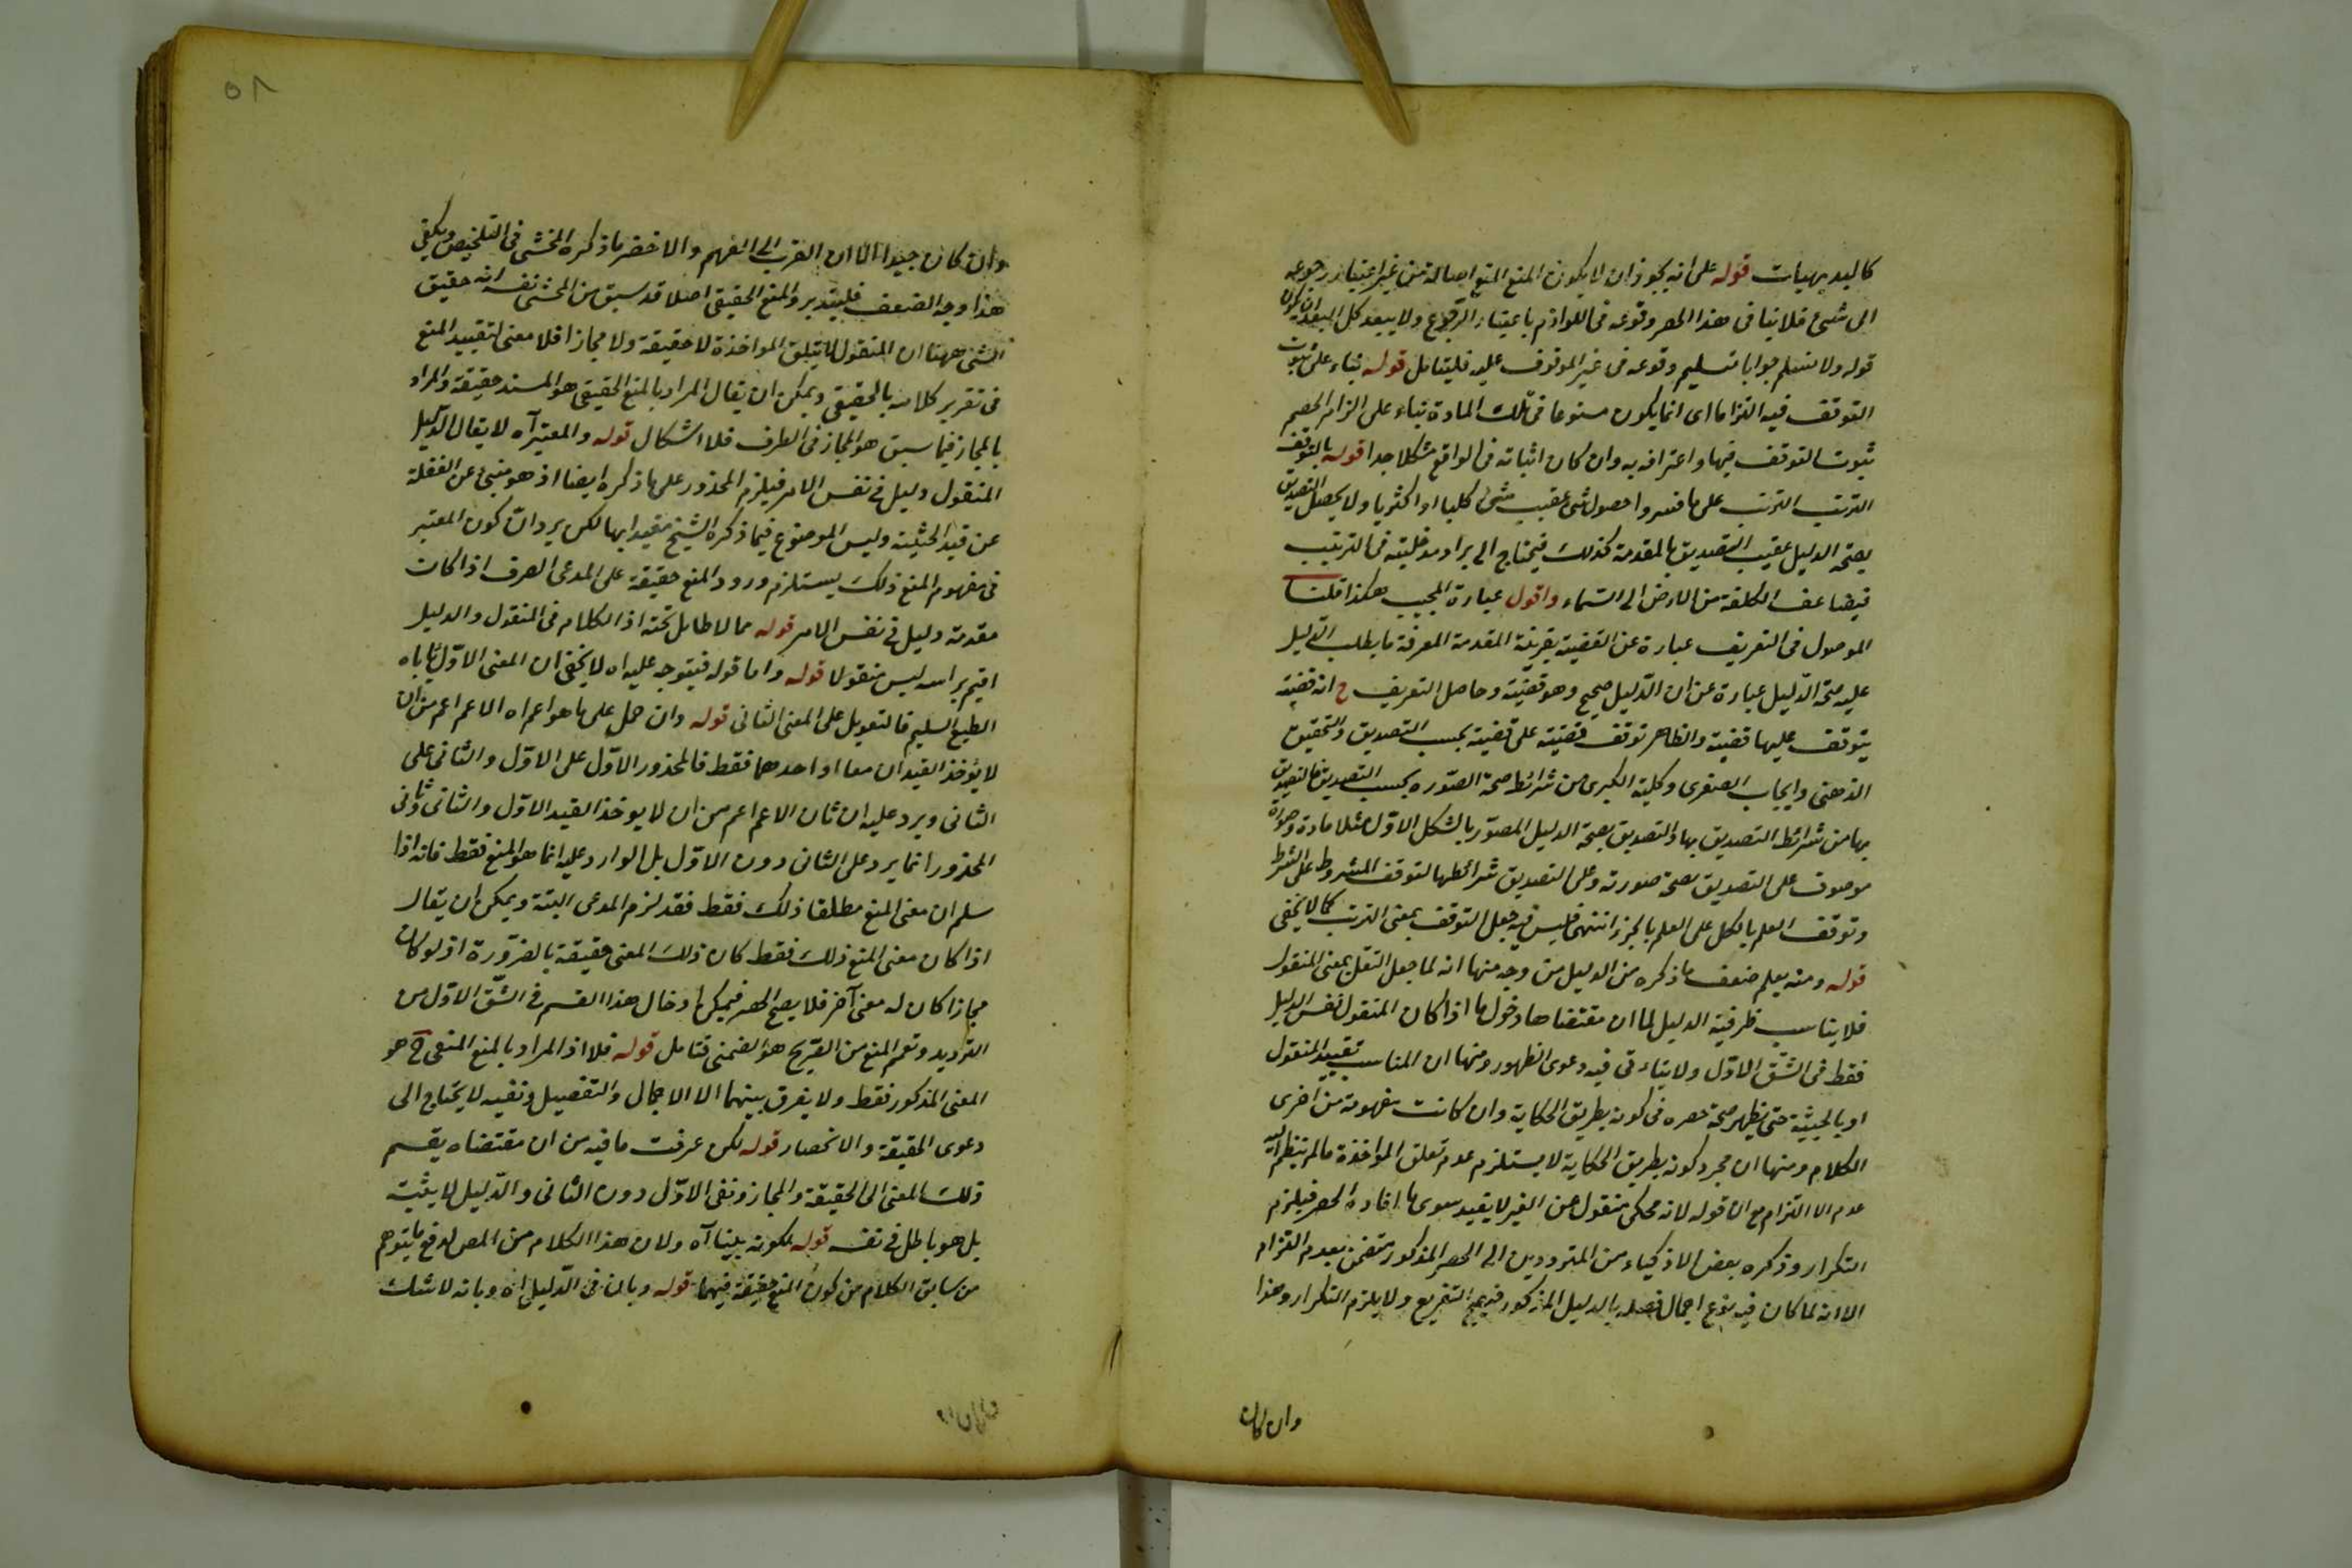 كالبديهيات قوله على انه يجوز ان لا يكون المنع المنع اصالة من غير اعتبار رجوعه
الى شىء فلا ينافى هذا الحصر وقوعه فى اللوازم باعتبار الرجوع ولا يبعد كل البعد ان يكون
قوله ولا نسلم جوابا بتسليم وقوعه فى غير الموقوف عليه فليتامل قوله بناء على ثبوت
التوقف فيه التزاما اى انما يكون ممنوعا فى تلك المادة بناء على الزام الخصم
ثبوت التوقف فيها واعترافه به وان كان اثباته فى الواقع مشكلا جدا قوله بالتوقف
الترتب الترتب على ما فسروا حصول شىء عقيب شىء كليا او اكثريا ولا يحصل التصديق
بصحة الدليل عقيب التصديق بالمقدمة كذلك فيحتاج الى يراد مدخليته فى الترتيب
فيضاعف الكلفة من الارض الى السماء واقول عبارة المجيب هكذا قلنا
الموصول فى التعريف عبارة عن القضية بقرينة المقدمة المعرفة ما يطلب الدليل
عليه صحة الدليل عبارة عن ان الدليل صحيح وهو قضية وحاصل التعريف ح انه قضية
يتوقف عليها قضية والظاهر توقف قضية على قضية بحسب التصديق والتحقيق
الذهنى وايجاب الصغرى وكلية الكبرى من شرائط صحة الصورة بحسب التصديق فالتصديق
بها من شرائط التصديق بها والتصديق بصحة الدليل المصور بالشكل الاول مثلا مادة وصورة
موصوف على التصديق بصحة صورته وعلى التصديق شرائطها لتوقف المشروط على الشرط
وتوقف العلم بالكل على العلم بالجزء انتهى فليس فيه جعل التوقف بمعنى الترتب كما لا يخفى
قوله ومنه يعلم ضعف ما ذكره من الدليل من وجه منها انه لما جعل النقل بمعنى المنقول
فلا يناسب ظرفية الدليل لما ان مقتضاها دخول ما اذا كان المنقول نفس الدليل
فقط فى الشق الاول ولا يتاءتى فيه دعوى الظهور ومنها ان المناسب تقييد المنقول
او بالحيثية حتى يظهر صحة حصره فى كونه بطريق الحكاية وان كانت مفهومة من اخرى
الكلام ومنها ان مجرد كونه بطريق الحكاية لا يستلزم عدم تعلق المواخذة ما لم ينظم اليه
عدم الالتزام مع ان قوله لانه محكى منقول عن الغير لا يفيد سوى ما افاده الحصر فيلزم
التكرار وذكره بعض الاذكياء من المترددين الى الحصر المذكور متضمن بعدم التزام
الا انه لما كان فيه نوع اجمال فصله بالدليل المذكور فيصح التفريع ولا يلزم التكرار وهذا
وان كان
٥٨
وان كان جيدا الا ان القرب الى الفهم والاخصر ما ذكره المحشى فى التلخيص ويكفى
هذا وجه الضعف فليتدبر والمنع الحقيقى اصلا قد سبق من المحشى نفسه انه حقيق
الشىء ههنا ان المنقول لا يتعلق المواخذة لا حقيقة ولا مجازا فلا معنى لتقييد المنع
فى تقرير كلامه بالحقيقى ويمكن ان يقال المراد بالمنع الحقيقى هو المسند حقيقة والمراد
بالمجاز فيما سبق هو المجاز فى الطرف فلا اشكال قوله والمعتبر آه لا يقال الدليل
المنقول دليل فى نفس الامر فيلزم المحذور على ما ذكره ايضا اذ هو منبئ عن الغفلة
عن قيد الحيثية وليس الموضوع فيما ذكره الشيخ مقيدا بها لكن يرد ان كون المعتبر
فى مفهوم المنع ذلك يستلزم ورود المنع حقيقة على المدعى الصرف اذا كانت
مقدمة دليل فى نفس الامر قوله مما لا طائل تحته اذ الكلام فى المنقول والدليل
اقيم براسه ليس منقولا قوله واما قوله فيتوجه عليه اه لا يخفى ان المعنى الاول ياباه
الطبع السليم فالتعويل على المعنى الثانى قوله وان حمل على ما هو اعم اه الاعم اعم من ان
لا يؤخذ القيدان معا او احدهما فقط فالمحذور الاول على الاول والثانى على
الثانى ويرد عليه ان ثان الاعم اعم من ان لا يوخذ القيد الاول والثانى وثانى
المحذور انما يرد على الثانى دون الاول بل الوارد عليه انما هو المنع فقط فانه اذا
سلم ان معنى المنع مطلقا ذلك فقط فقد لزم المدعى البتة ويمكن ان يقال
اذا كان معنى المنع ذلك فقط كان ذلك المعنى حقيقة بالضرورة اذ لو كان
مجازا كان له معنى آخر فلا يصح الحصر فيمكن ادخال هذا القسم فى الشق الاول من
الترديد وتعميم المنع من الصريح هو الضمنى فتامل قوله فلا اذ المراد بالمنع المنفى ح هو
المعنى المذكور فقط ولا يفرق بينهما الا الاجمال والتفصيل ونفيه لا يحتاج الى
دعوى الحقيقة والانحصار قوله لكن عرفت ما فيه من ان مقتضاه يقسم
ذلك المعنى الى الحقيقة والمجاز ونفى الاول دون الثانى والدليل لا يثبته
بل هو باطل فى نفسه قوله لكونه بلينا آه ولان هذا الكلام من المص لدفع ما يتوهم
من سابق الكلام من كون المنع حقيقة فيهما قوله وبان فى الدليل اه وبانه لا شك